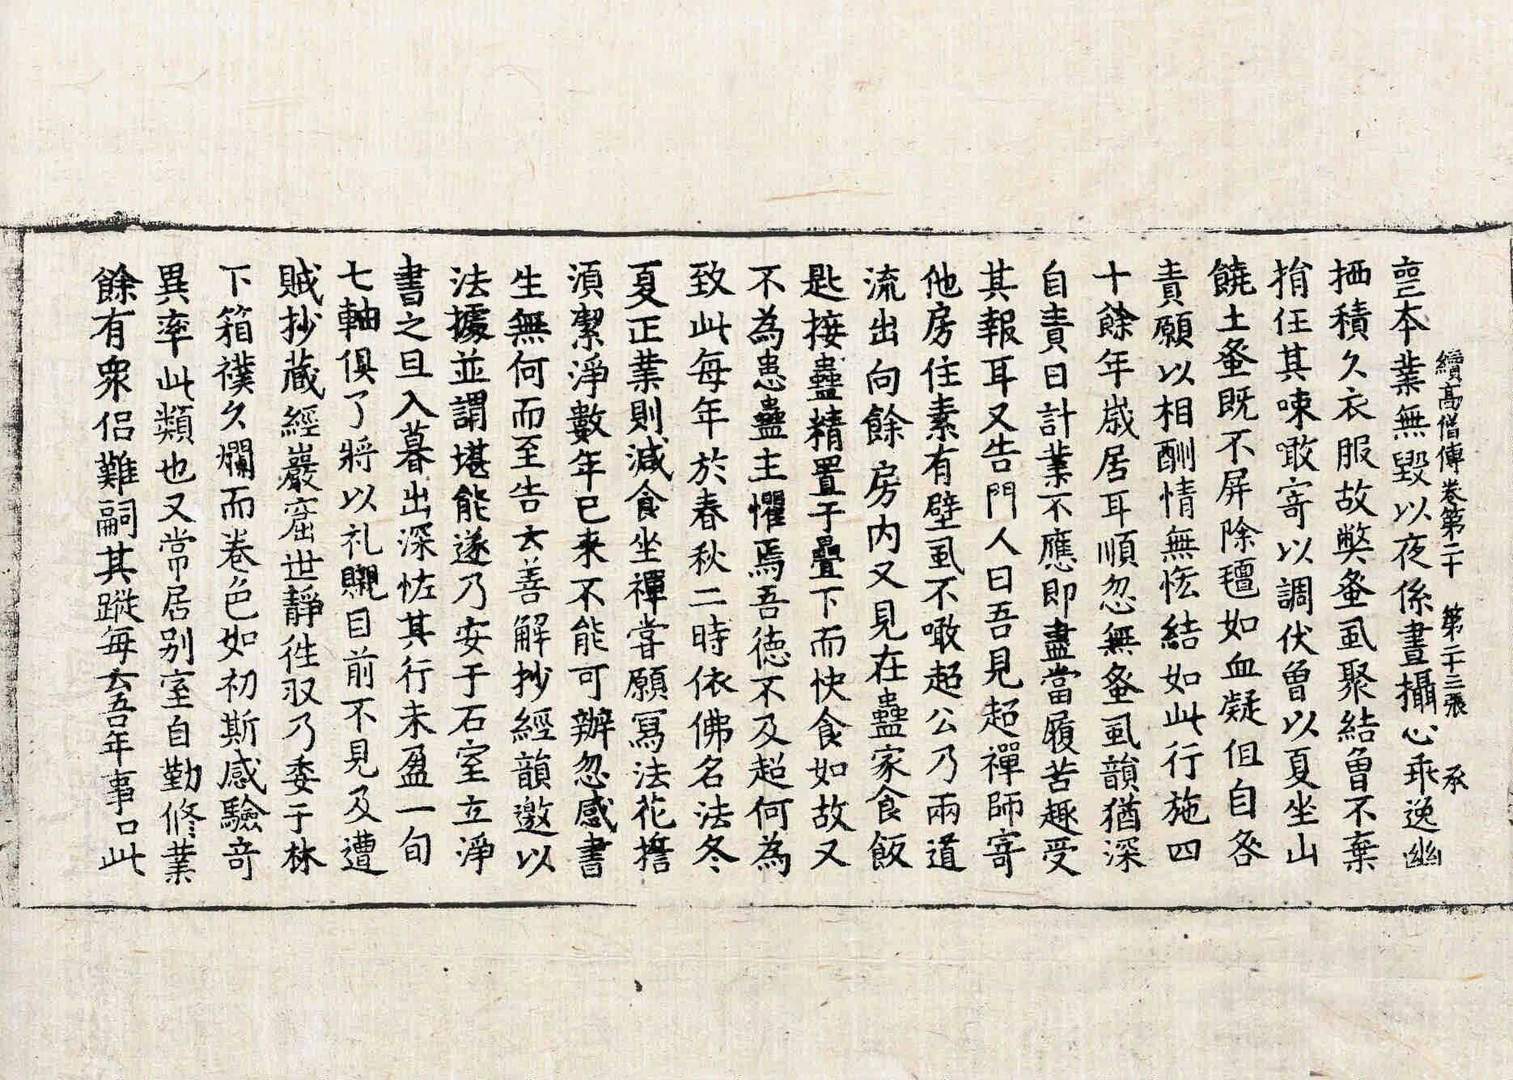 續高僧傳卷第二十 第二十三張 承
亟本業無毀以夜係晝攝心乖逸幽
栖積久衣服故弊蚤虱聚結曾不棄
捐任其唼噉寄以調伏曾以夏坐山
饒土蚤既不屏除氊如血凝但自咎
責願以相酬情無恡結如此行施四
十餘年歲居耳順忽無蚤虱韻猶深
自責曰計業不應即盡當履苦趣受
其報耳又告門人曰吾見超禪師寄
他房住素有壁虱不噉超公乃兩道
流出向餘房內又見在蠱家食飯
匙接蠱精置于疊下而快食如故又
不為患蠱主懼焉吾德不及超何為
致此每年於春秋二時依佛名法冬
夏正業則減食坐禪嘗願寫法花擔
湏潔淨數年已来不能可辦忽感書
生無何而至告云善解抄經韻邀以
法據並謂堪能遂乃安于石室立淨
書之旦入暮出深恠其行未盈一旬
七軸俱了將以礼䞋目前不見及遭
賊抄藏經巖窟世靜徃収乃委于林
下箱襆久爛而卷色如初斯感驗竒
異率此類也又常居别室自勤修業
餘有衆侣難嗣其蹤每云吾年事口此